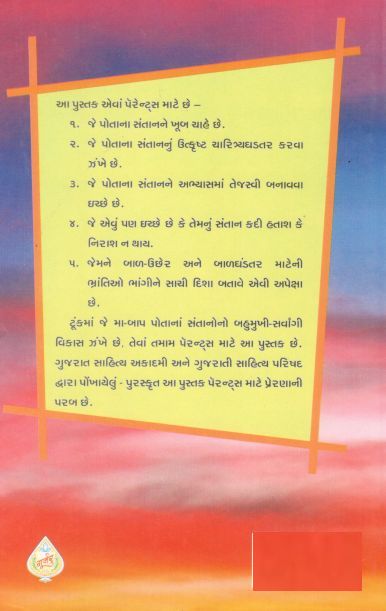 આ પુસ્તક એવાં પૅરેન્ટ્સ માટે છે –
૧. જે પોતાના સંતાનને ખૂબ ચાહે છે.
૨. જે પોતાના સંતાનનું ઉત્કૃષ્ટ ચારિત્ર્યઘડતર કરવા
ઝંખે છે.
૩. જે પોતાના સંતાનને અભ્યાસમાં તેજસ્વી બનાવવા
ઇચ્છે છે.
૪. જે એવું પણ ઇચ્છે છે કે તેમનું સંતાન કદી હતાશ કે
નિરાશ ન થાય.
૫. જેમને બાળ-ઉછેર અને બાળઘડંતર માટેની
ભ્રાંતિઓ ભાંગીને સાચી દિશા બતાવે એવી અપેક્ષા
છે.
ટૂંકમાં જે મા-બાપ પોતાનાં સંતાનોનો બહુમુખી-સર્વાંગી
વિકાસ ઝંખે છે. તેવાં તમામ પૅરન્ટ્સ માટે આ પુસ્તક છે.
ગુજરાત સાહિત્ય અકાદમી અને ગુજરાતી સાહિત્ય પરિષદ
દ્વારા પોંખાયેલું - પુરસ્કૃત આ પુસ્તક પૅરન્ટ્સ માટે પ્રેરણાની
પરબ છે.
ગુર્જર